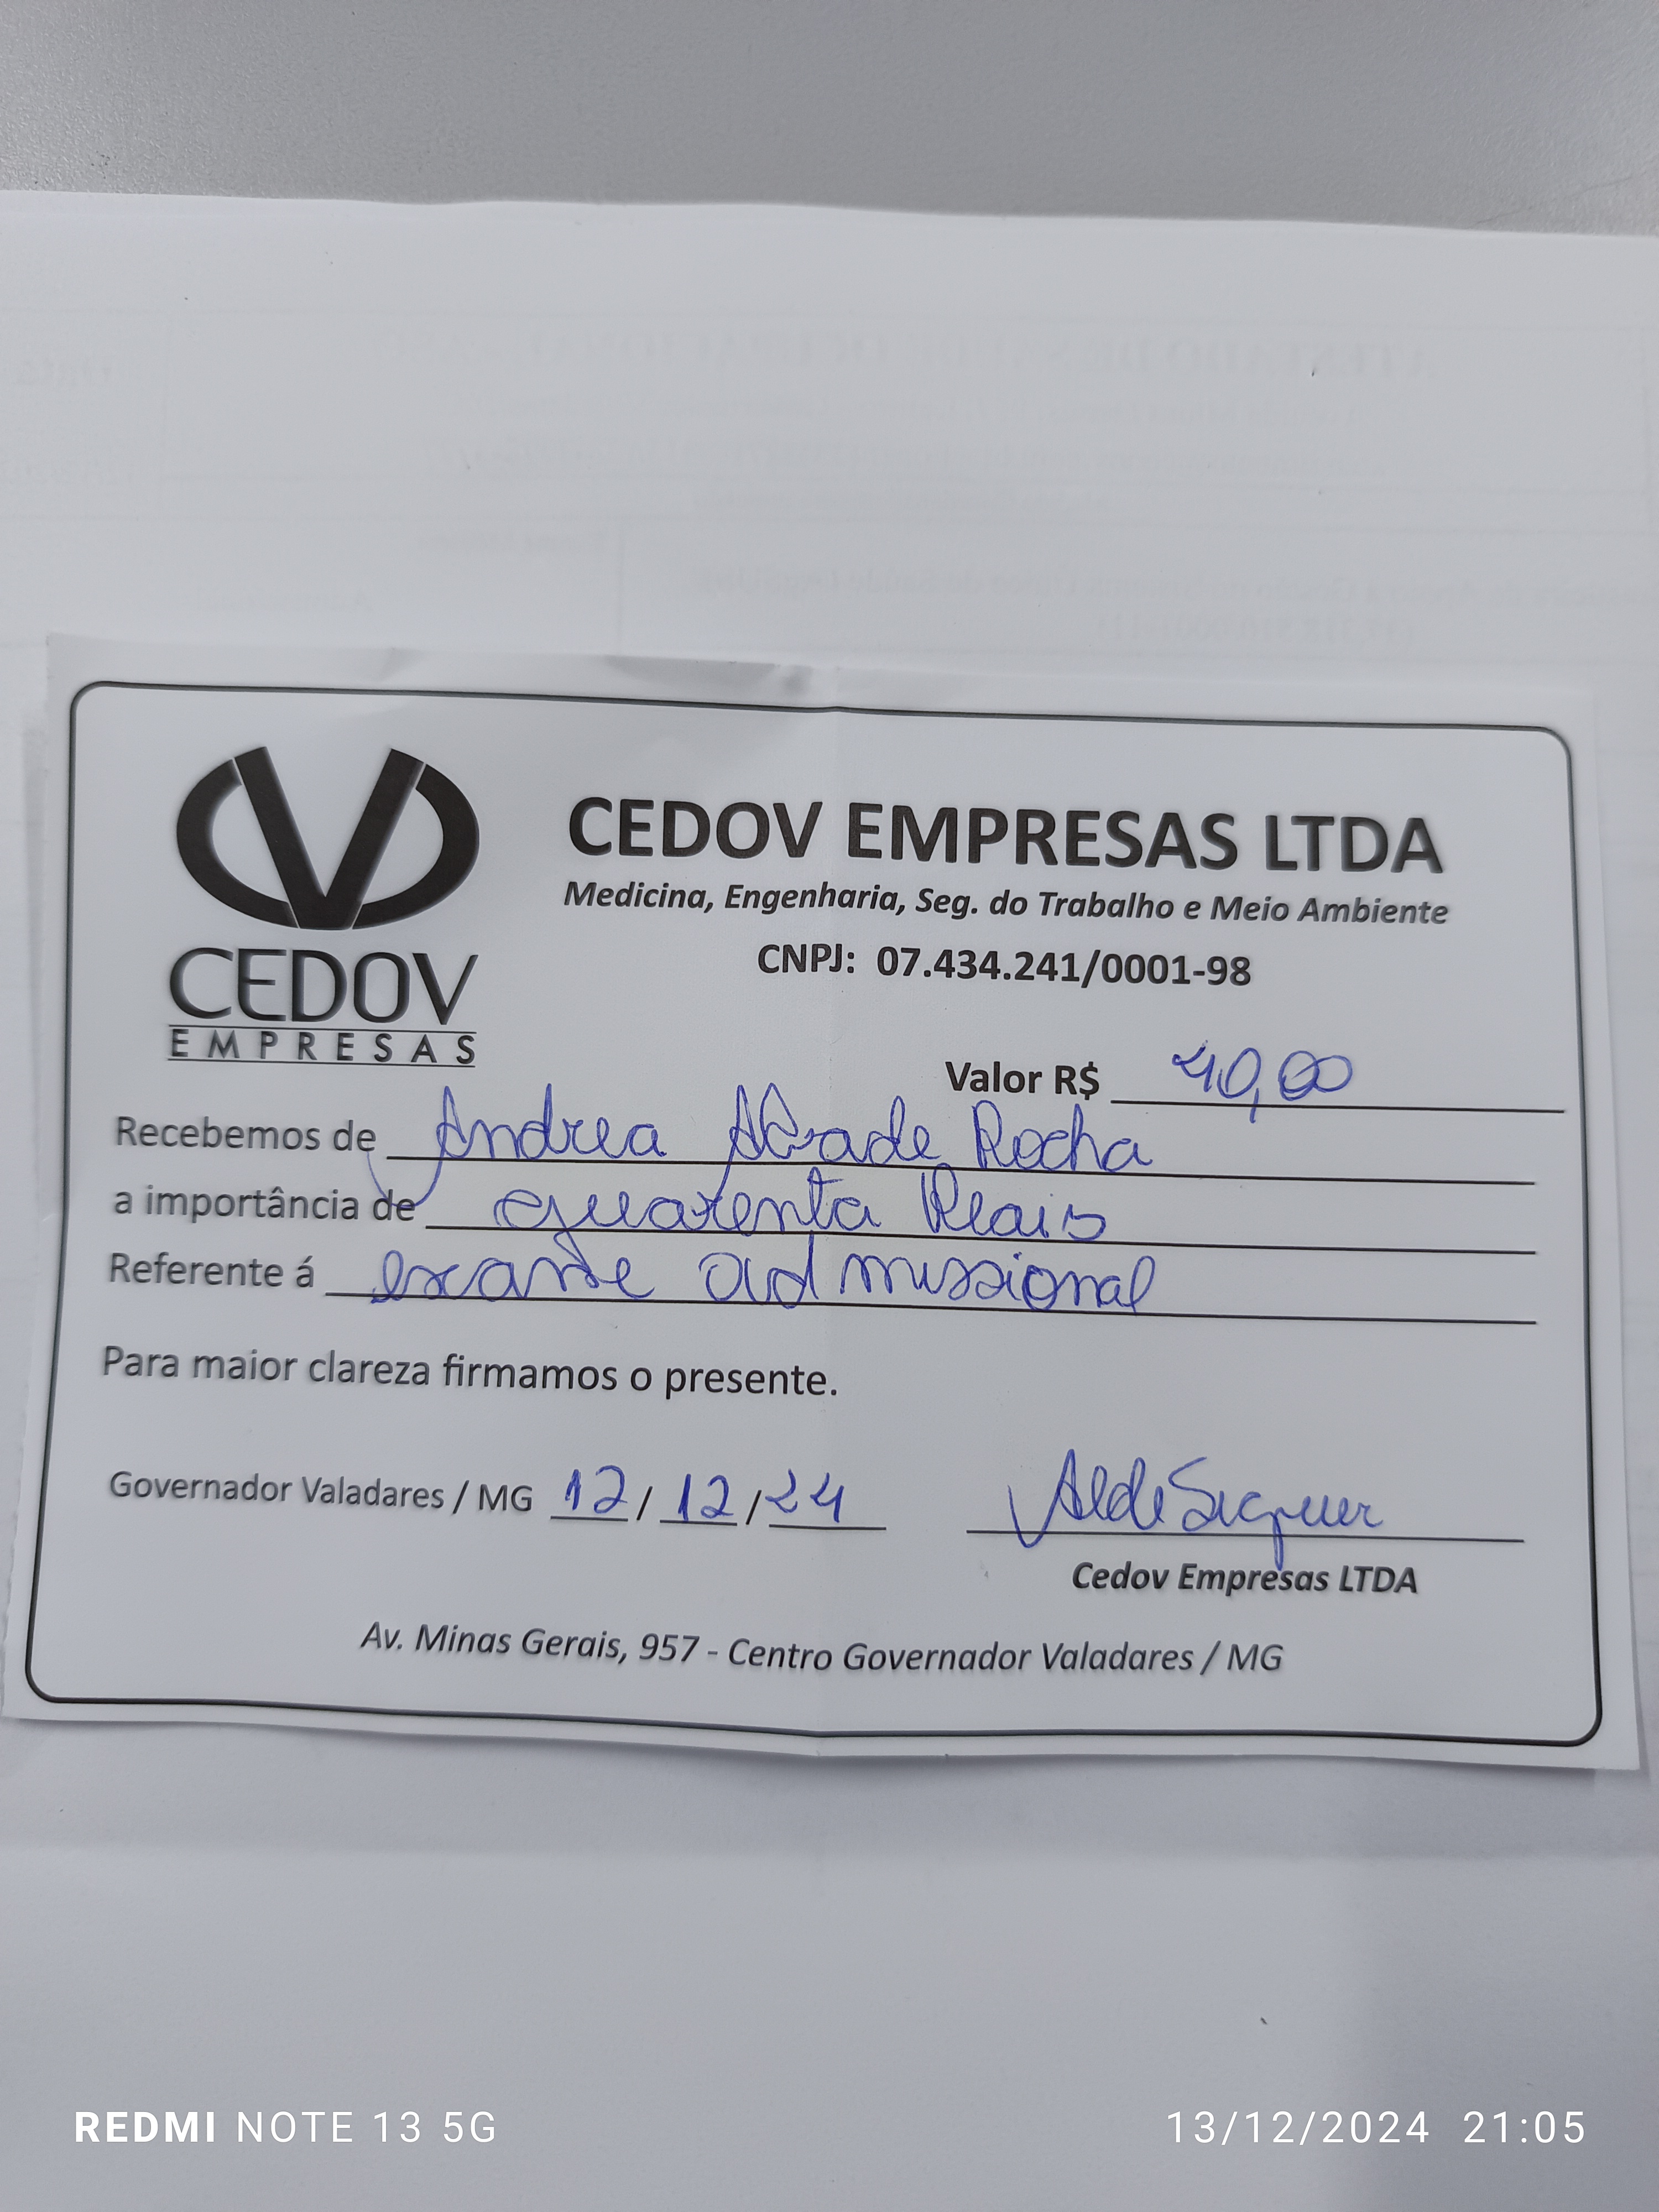 CEDOV
EMPRESAS
CEDOV EMPRESAS LTDA
Medicina, Engenharia, Seg. do Trabalho e Meio Ambiente
CNPJ: 07.434.241/0001-98
Valor R$ 40,00
Recebemos de Andrea Rocha
a importância de quarenta Reais
Referente á exame admissional
Para maior clareza firmamos o presente.
Governador Valadares / MG 12/12/24
Cedov Empresas LTDA
Av. Minas Gerais, 957 - Centro Governador Valadares / MG
REDMI NOTE 13 5G
13/12/2024 21:05